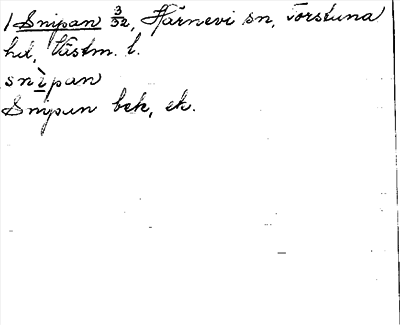 1 Snipan 3/32, Härnevi sn, Torstuna
hd, Västm. l.
snìpan
Snipan bek, ek.